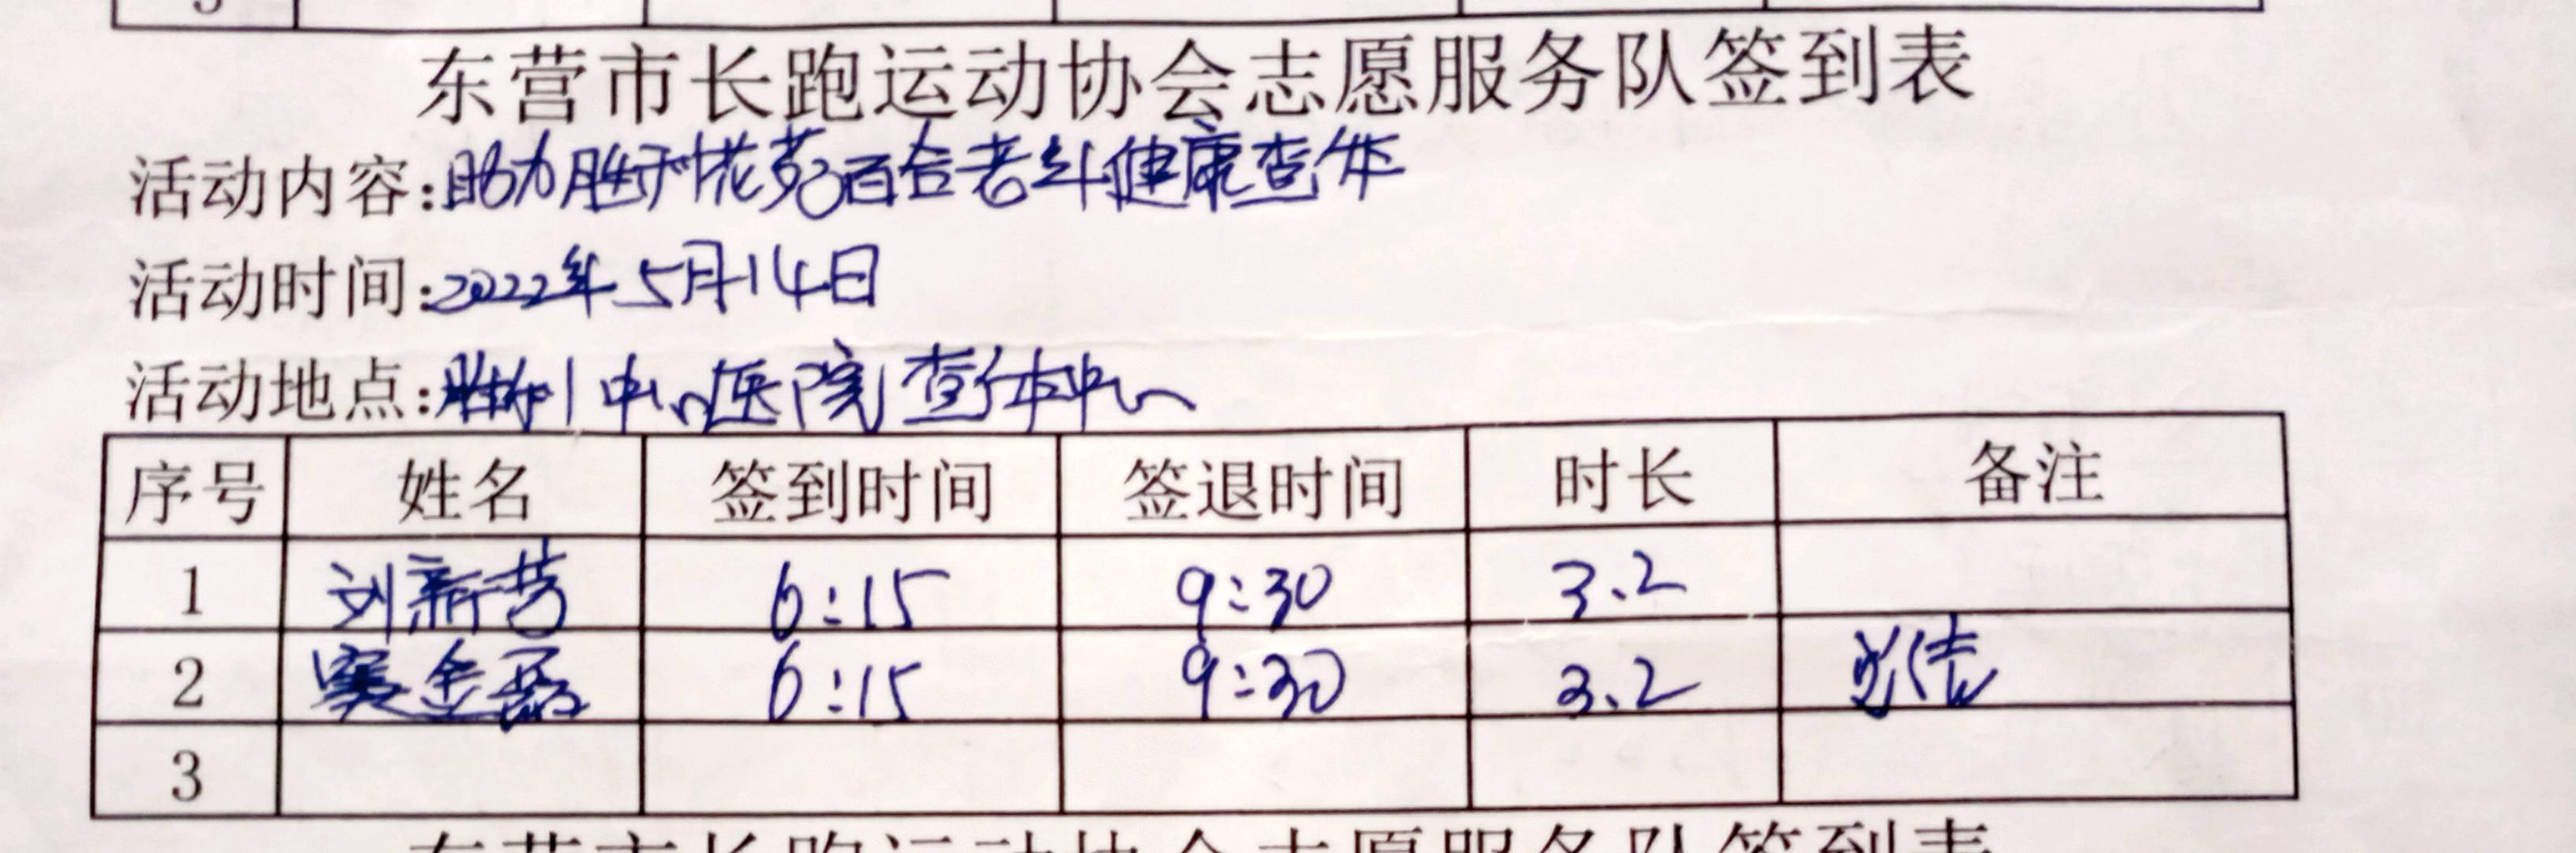 东营市长跑运动协会志愿服务队签到表
活动内容:助力胜利花苑百合老年健康查体
活动时间:2022年5月14日
活动地点:胜利中心医院查体中心
序号 姓名 签到时间 签退时间 时长 备注
1 刘新芳 6:15 9:30 3.2
2 金磊 6:15 9:30 3.2
3
东营市长跑运动协会志愿服务队签到表